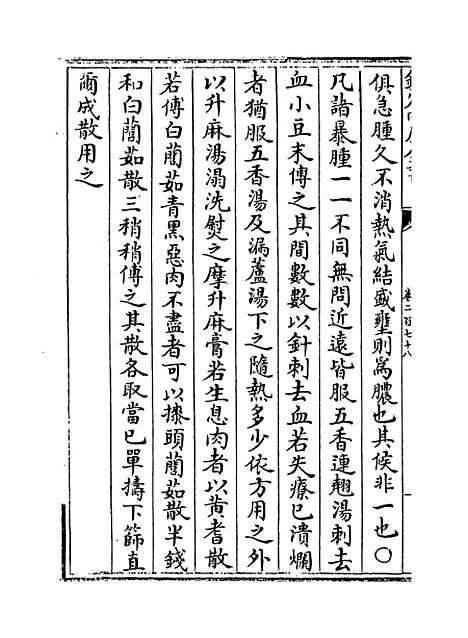 俱急腫久不消熱氣結盛壅則為膿也其候非一也〇
凡諸暴腫一一不同無問近遠皆服五香連翹湯刺去
血小豆末傅之其間數數以針刺去血若失療已潰爛
者猶服五香湯及漏蘆湯下之隨熱多少依方用之外
以升麻湯溻洗熨之摩升麻膏若生息肉者以黄耆散
若傅白䕡茹青黑惡肉不盡者可以㯿頭䕡茹散半錢
和白䕡茹散三稍稍傅之其散各取當已單擣下篩直
爾成散用之
卷二百七十八